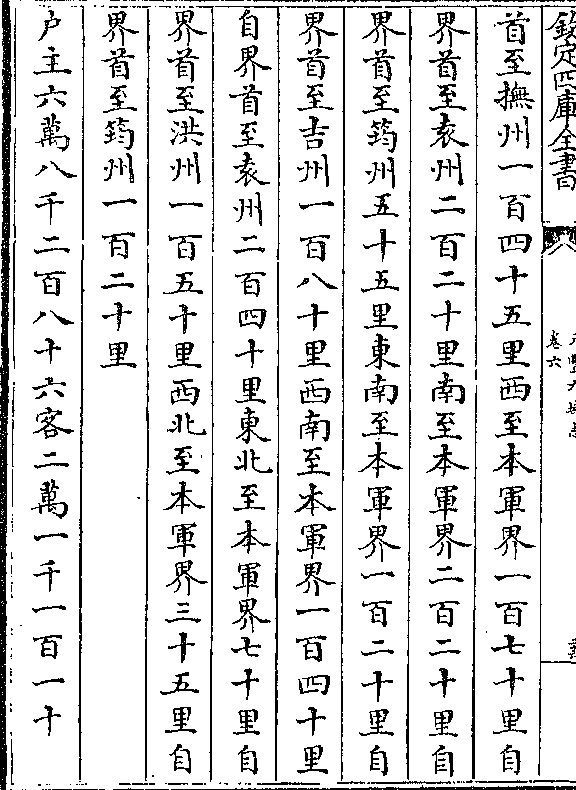 欽定四庫全書
元豐九域志
卷六
首至撫州一百四十五里西至本軍界一百七十里自
界首至袁州二百二十里南至本軍界二百二十里自
界首至筠州五十五里東南至本軍界一百二十里自
界首至吉州一百八十里西南至本軍界一百四十里
自界首至袁州二百四十里東北至本軍界七十里自
界首至洪州一百五十里西北至本軍界三十五里自
界首至筠州一百二十里
户主六萬八千二百八十六客二萬一千一百一十